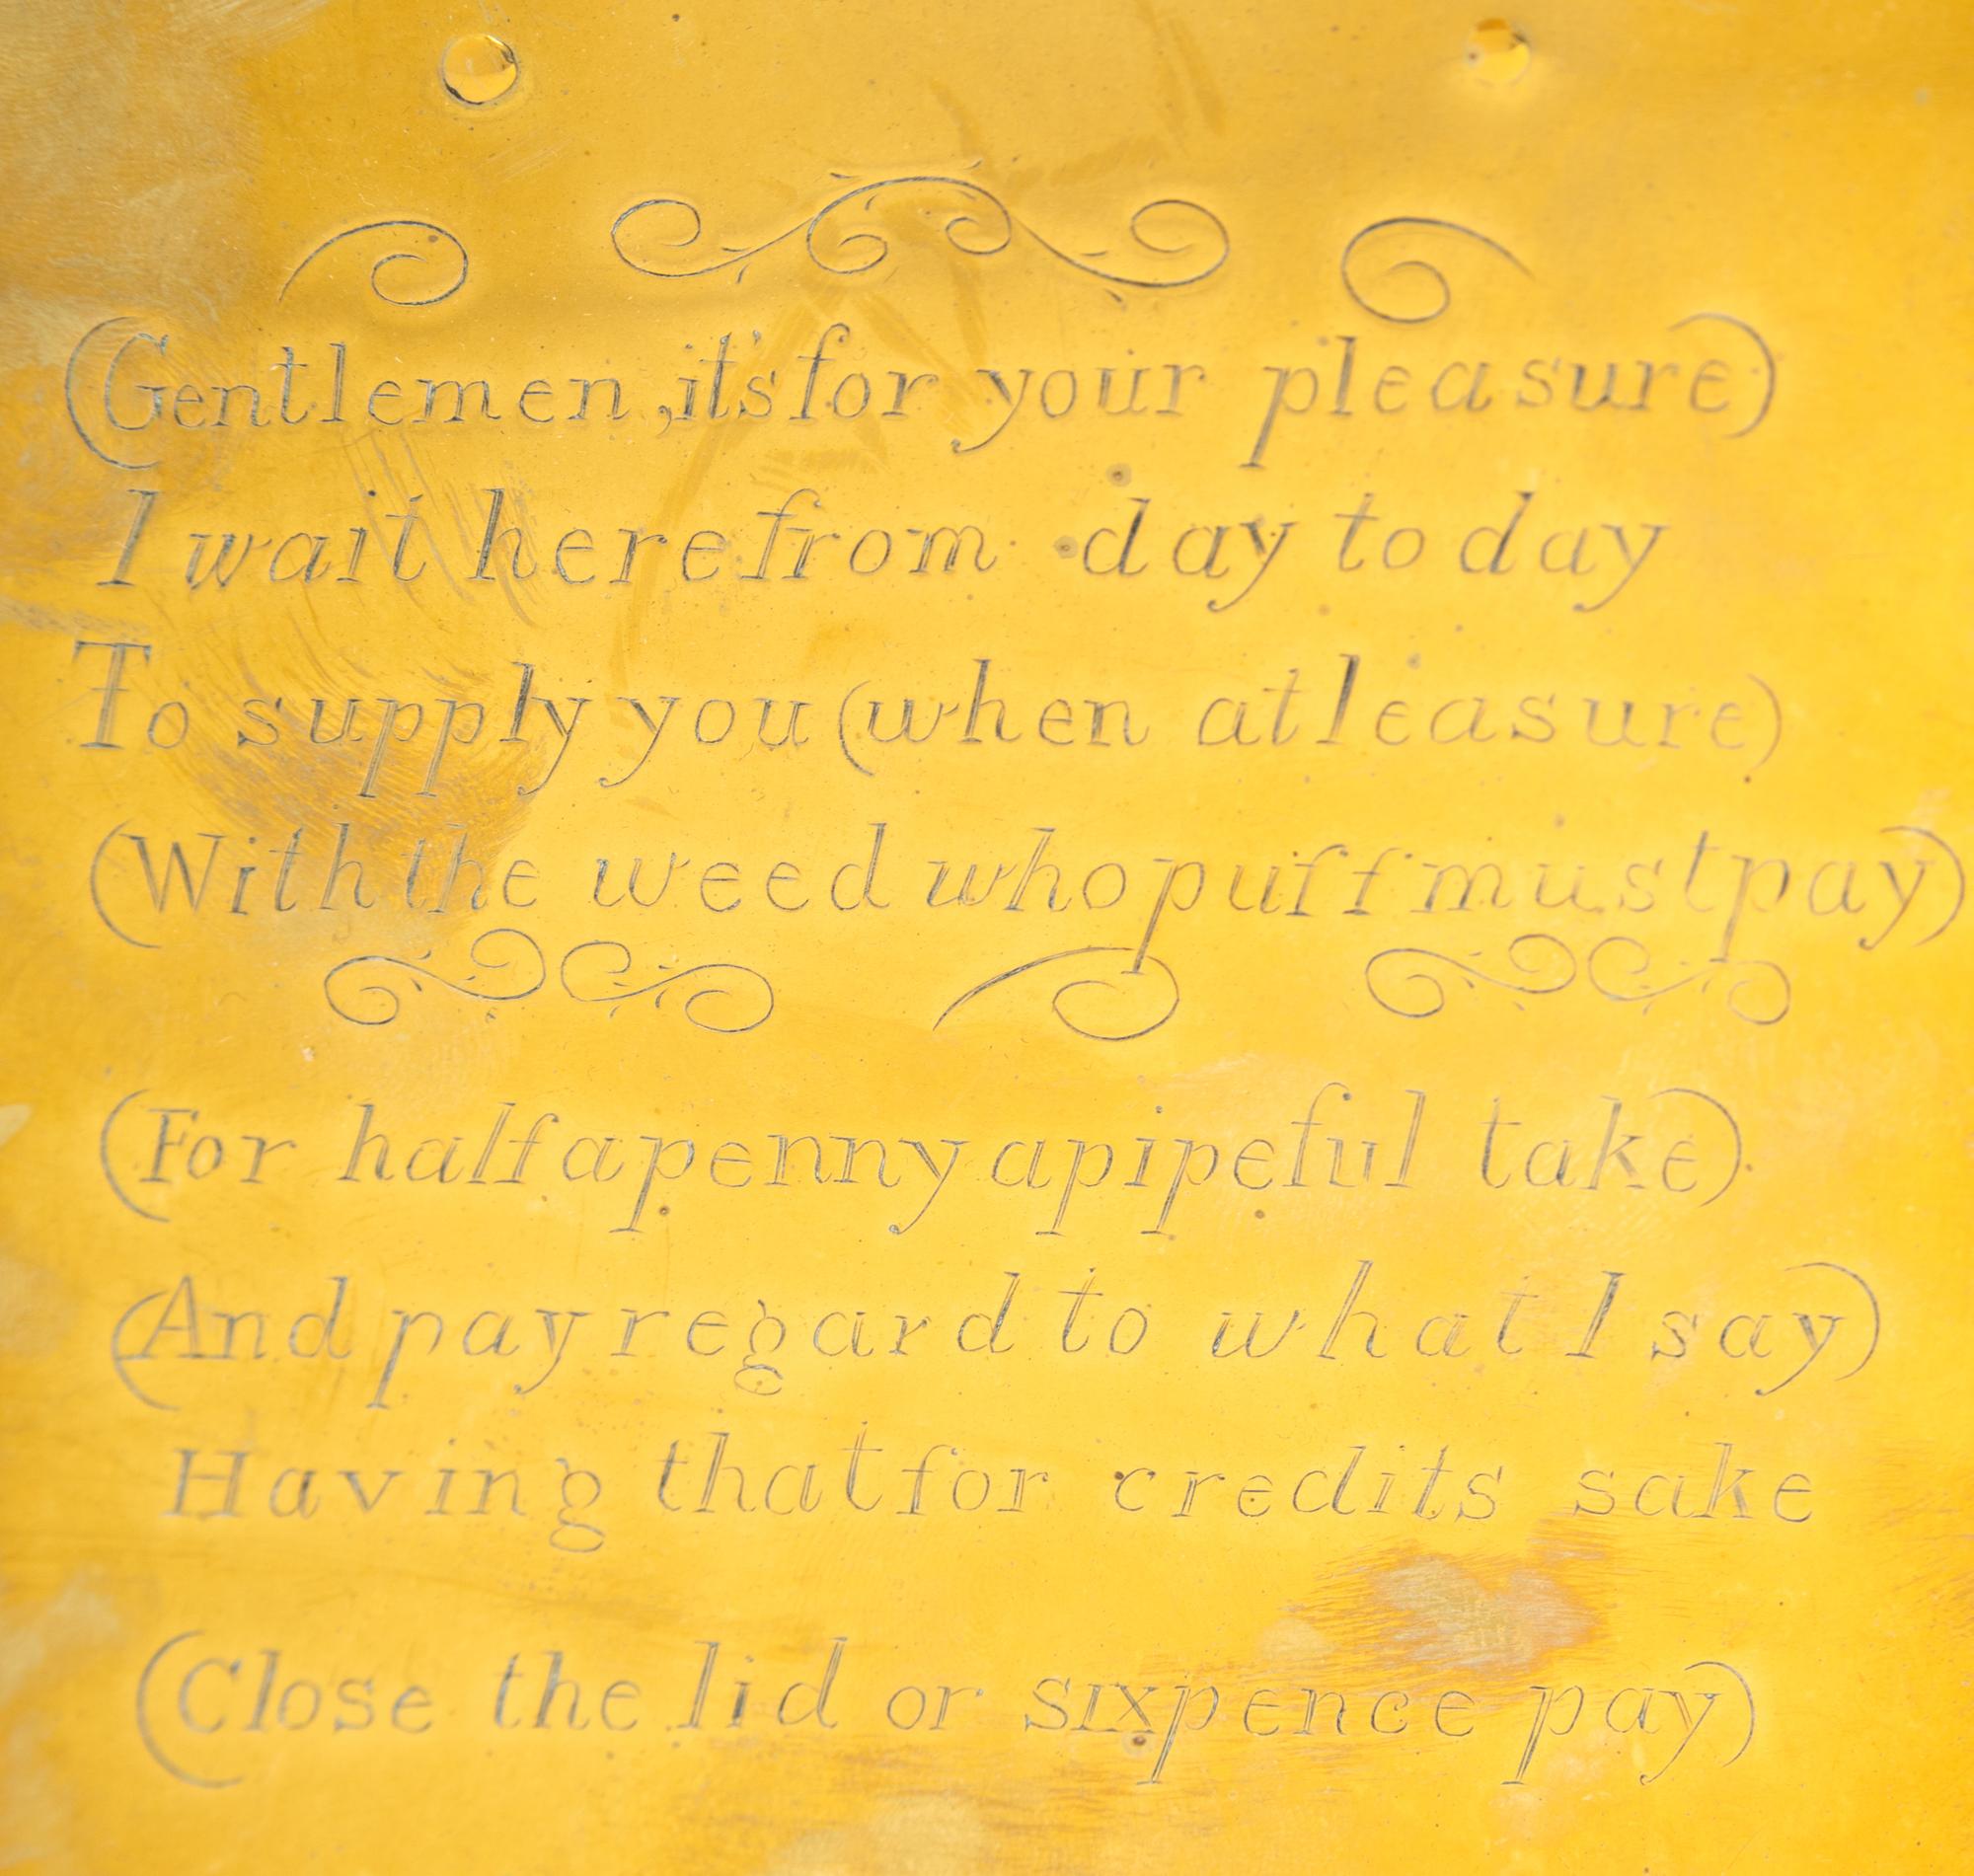 (Gentlemen, it's for your pleasure)
I wait here from day to day
To supply you (when at leasure)
(With the weed who puff must pay)
(For half a penny a pipeful take)
(And pay regard to what I say)
Having that for credits sake
(Close the lid or sixpence pay)